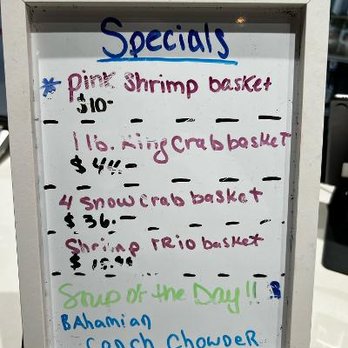 Specials
* Pink Shrimp basket
$10-
1 lb. King Crab basket
4 Snow Crab basket
$ 36.-
Shrimp TRIO basket
Soup of the Day!!
BAhamian
Conch Chowder